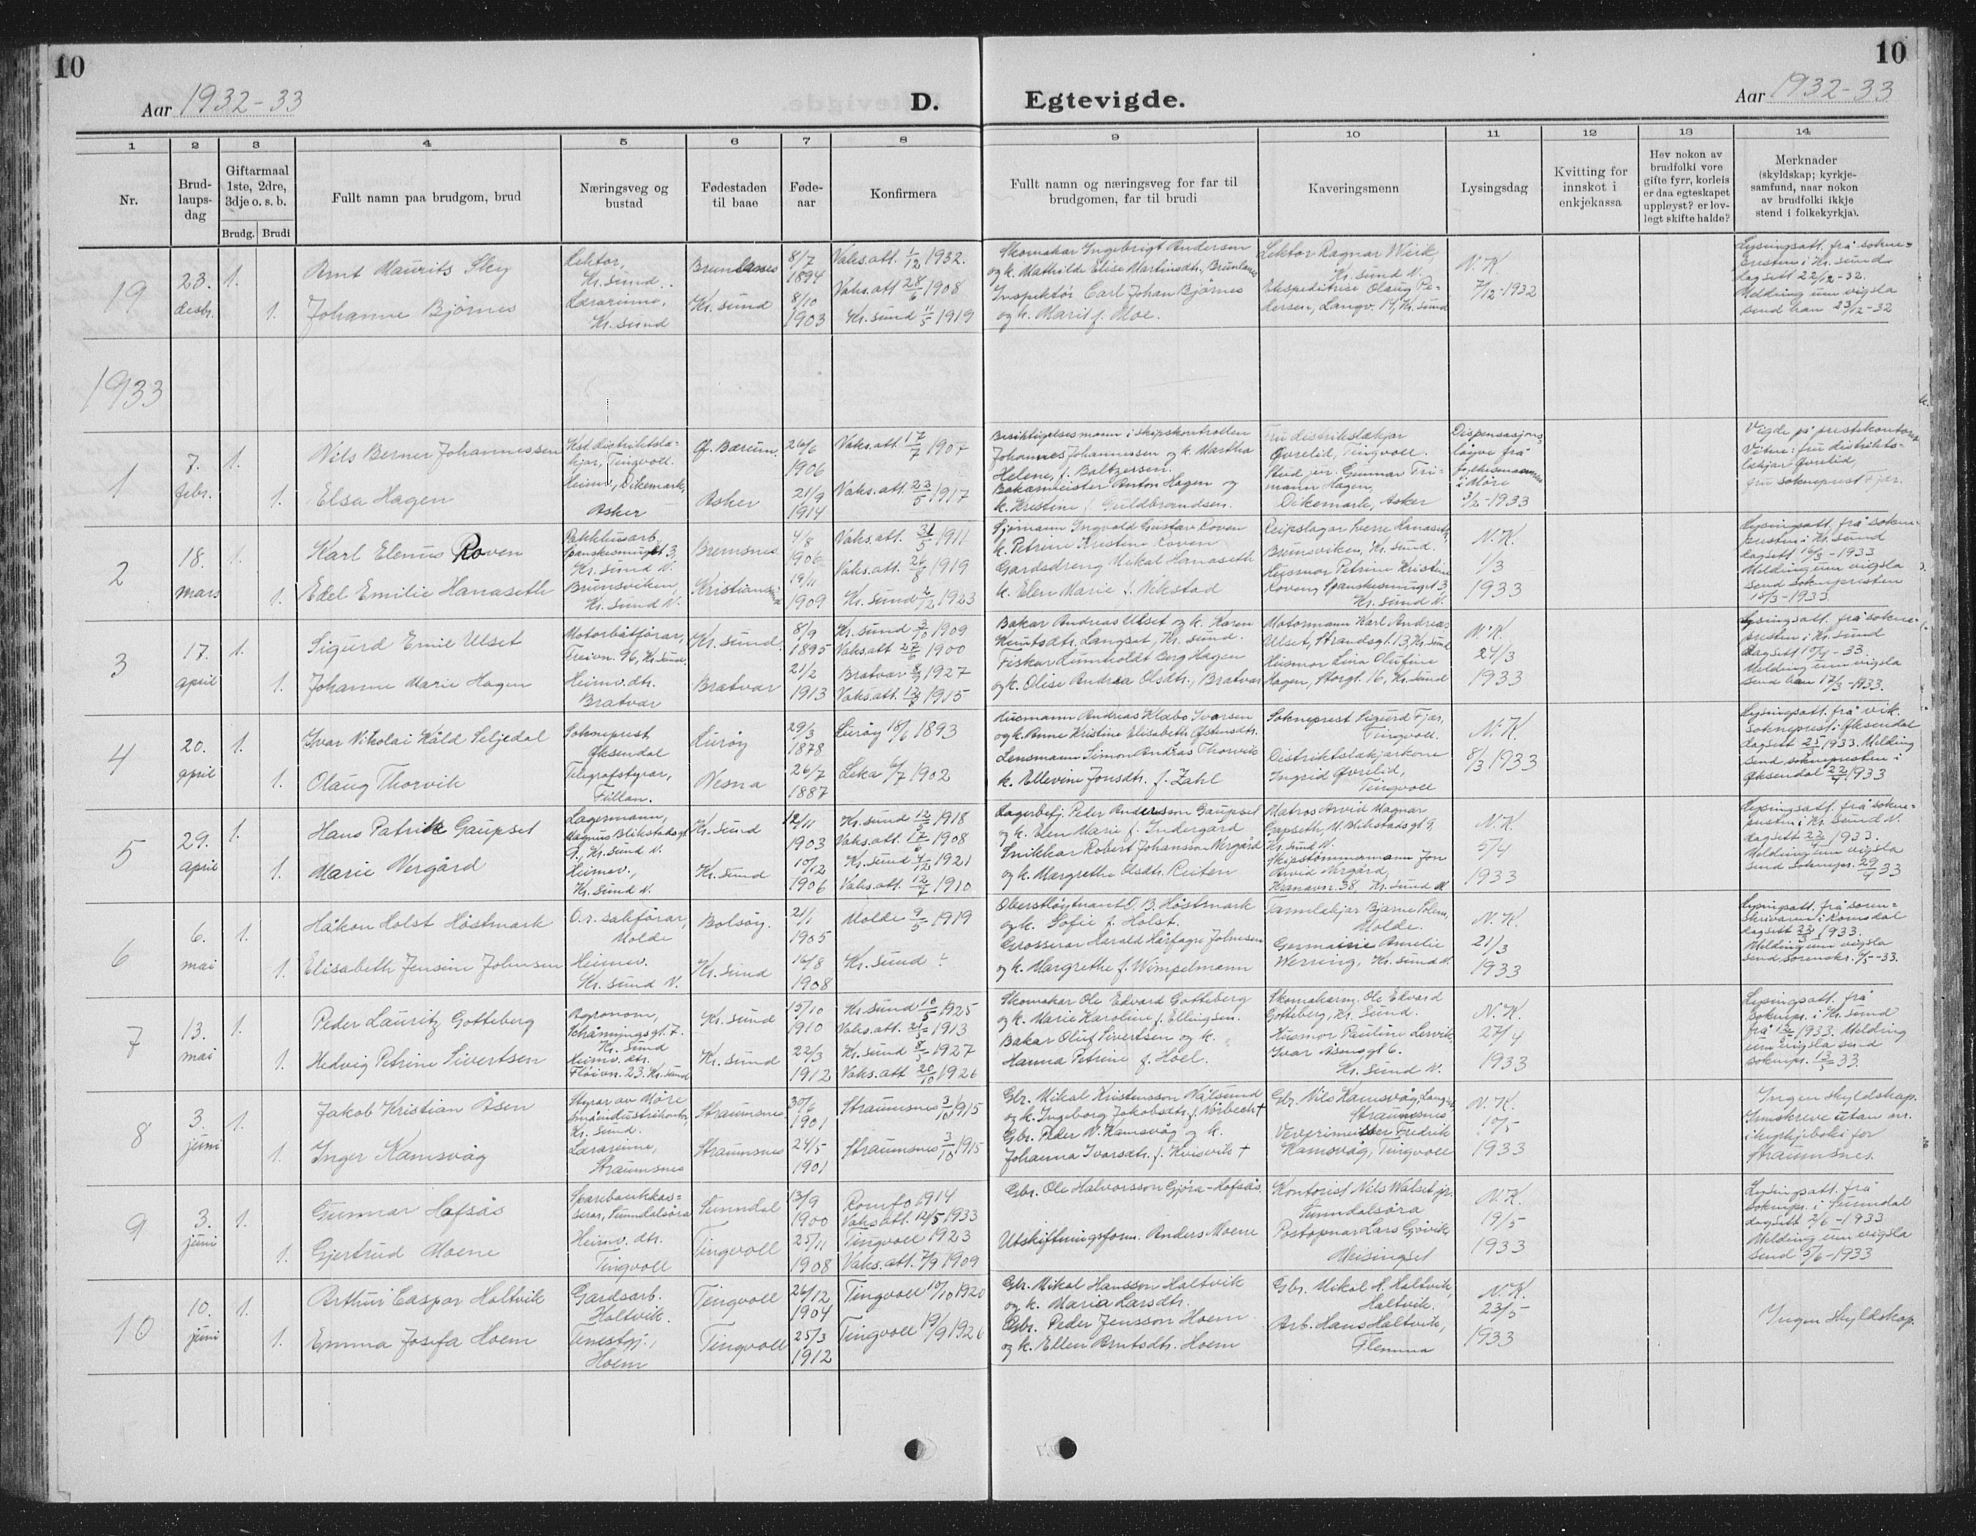 10
Aar 1932-33
D.
Egtevigde.
Aar 1932-33
10
1 2 3 4 5 6 7 8 9 10 11 12 13 14
Nr.
Brud-
laups-
dag
Giftarmaal
1ste, 2dre,
3dje o. s. b.
Brudg. Brudi
Fullt namn paa brudgom, brud
Næringsveg og
bustad
Fødestaden
til baae
Føde-
aar
Konfirmera
Fullt namn og næringsveg for far til
brudgomen, far til brudi
Kaveringsmenn
Lysingsdag
Kvitting for
innskot i
enkjekassa
Hev nokon av
brudfolki vore
gifte fyrr, korleis
er daa egteskapet
uppløyst? er lov-
legt skifte halde?
Merknader
(skyldskap; kyrkje-
samfund, naar nokon
av brudfolki ikkje
stend i folkekyrkja).
19
23.
desbr.
1.
Arnt Maurits Sky
Lektor,
Kr.sund.
Brunlanes
8/7
1894
Vaks.att. 1/12 1932.
Vaks.att 28/6 1908
1.
Johanne Bjørnes
Lærarinne,
Kr.sund
Kr.sund
8/10
1903
Kr.sund 11/5 1919
Skomakar Ingebrigt Andersen
og k. Mathilde Elise Martinsdt., Brunlanes
Inspektør Carl Johan Bjørnes
og k. Marit f. Moe.
Lektor Ragnar Wiik,
Kr.sund N.
Ekspeditrise Olaug Pe-
dersen, Langv. 14, Kr.sund
N.K.
7/12-1932
Lysingsatt. frå sokne-
presten i Kr.sund
dagsett 22/12-32.
Melding um vigsla
send han 23/12-32
1933
1
7.
febr.
1.
Nils Berner Johannessen
Kst. distriktslæ-
kjar, Tingvoll.
Ø. Bærum
26/6
1906
Vaks.att. 17/7 1907
1.
Elsa Hagen
Heimv, Dikemark,
Asker
Asker
21/9
1914
Vaks.att. 23/5 1917
Besiktigelsesmann i skipskontrollen
Johannes Johannessen og k. Martha
Helene, f. Baltzersen.
Bakarmeister Anton Hagen og
k. Kristine f. Guldbrandsen.
Fru distriktslækjar
Øvrelid, Tingvoll.
Stud. jur. Gunnar Tri-
mann Hagen,
Dikemark, Asker
Dispensasjons-
løyve frå
fylkesmannen
i Møre
3/2-1933
Vigde på prestekontoret
Vitne: fru distrikts-
lækjar Øvrelid,
fru sokneprest Fjær.
2
18.
mars
1.
Karl Elenus Roven
Pakkhusarb.
Spanskesmuget 3,
Kr.sund N.
Bremsnes
4/8
1906
Vaks.att. 31/5 1911
Vaks.att. 26/8 1919
1.
Edel Emilie Hanaseth
Brunsviken,
Kr.sund N.
Kristiansund
19/11
1909
Kr.sund 2/12 1923
Sjømann Ingvald Gustav Roven
k. Petrine Kristine Roven
Gardsdreng Mikal Hanaseth
k. Elen Marie f. Vikstad
Reipslagar Sverre Hanaseth,
Brunsviken, Kr.sund.
Husmor Petrine Kristine
Roven, Spanskesmuget 3,
Kr.sund N.
N.K.
1/3
1933
Lysingsatt. frå sokne-
presten i Kr.sund
dagsett 16/3-1933
Melding um vigsla
send soknepresten
18/3-1933.
3
17.
april
1.
Sigurd Emil Ulset
Motorbåtførar,
Freiv. 96, Kr.sund.
Kr.sund.
8/9
1895
Kr.sund 3/10 1909
Vaks.att 27/6 1900
1.
Johanne Marie Hagen
Heimv. dtr.
Bratvær
Bratvær
21/2
1913
Bratvær 8/9 1927
Vaks.att. 12/9 1915
Bakar Andreas Ulset og k. Karen
Knutsdtr, Langset, Kr.sund.
Fiskar Humboldt Berg Hagen
og k. Olise Andrea Olsdtr., Bratvær
Motormann Karl Andreas
Ulset, Strandgt. 13, Kr.sund
Husmor Lina Olufine
Hagen, Storgt. 16, Kr.sund
N.K.
24/3
1933
Lysingsatt. frå sokne-
presten i Kr.sund
dagsett 10/4-33.
Melding um vigsla
send han 17/4-1933.
4
20.
april
1.
Ivar Nikolai Kåld Seljedal
Sokneprest
Øksendal
Lurøy
29/3
1878
Lurøy 18/6 1893
1.
Olaug Thorvik
Telegrafstyrar,
Fillan.
Nesna
26/7
1887
Leka 6/7 1902
Husmann Andreas Klæbo Ivarsen
og k. Anne Kristine Elisabeth Østensdtr.
Lensmann Simon Andreas Thorvik
k. Ellevine Jonsdtr. f. Zahl
Sokneprest Sigurd Fjær,
Tingvoll.
Distriktslækjarkone
Ingrid Øvrelid,
Tingvoll
N.K.
8/3 1933
Lysingsatt. frå vik.
sokneprest i Øksendal
dagsett 25/3 1933. Melding
send soknepresten i
Øksendal 22/4 1933
5
29.
april
1.
Hans Patrik Gaupset
Lagermann,
Magnus Blikstadsgt
9, Kr.sund N.
Kr.sund
12/11
1903
Kr.sund 12/5 1918
Vaks.att. 17/6 1908
1.
Marie Nergård
Heimv.,
Kr.sund N.
Kr.sund
10/12
1906
Kr.sund 4/12 1921
Vaks.att. 12/7 1910
Lagerbetj. Peder Andersson Gaupset
og k. Elen Marie f. Indergård
Snikkar Robert Johansen Nergård
og k. Margrethe Olsdtr. Reiten
Matros Arvid Magnar
Gapseth, M. Blikstadsgt 9,
Kr.sund N.
Skipstømmermann Jon
Arvid Nergård,
Kranavn. 38, Kr.sund N
N.K.
5/4
1933
Lysingsatt. frå sokne-
presten i Kr.sund N.
dagsett 22/4 1933.
Melding um vigsla
send soknepr. 29/4 33
6
6.
mai
1.
Håkon Holst Høstmark
O.r. sakførar,
Molde
Bolsøy.
21/1
1905
Molde 9/5 1919
1.
Elisabeth Jensine Johnsen
Heimev.
Kr.sund N.
Kr.sund
16/8
1908
Kr.sund ÷
Oberstløytnant O. B. Høstmark
og k. Sofie f. Holst.
Grosserar Harald Hårfagre Johnsen
og k. Margrethe f. Wimpelmann
Tannlækjar Bjarne Solem,
Molde.
Germaine Amelie
Werring, Kr.sund N.
N.K.
21/3
1933
Lysingsatt. frå soren-
skrivaren i Romsdal
dagsett 22/3 1933.
Melding um vigsla
send sorenskr. 9/5-33.
7
13.
mai
1.
Peder Lauritz Gotteberg
Agronom,
Schånningsgt. 7.
Kr.sund
Kr.sund
15/10
1910
Kr.sund 10/5 1925
Vaks.att. 21/2 1913
1.
Hedvig Petrine Sivertsen
Heimv. dtr.
Fløivn. 23. Kr.sund
Kr.sund
22/3
1912
Kr.sund 8/5 1927
Vaks.att 20/10 1926
Skomakar Ole Edvard Gotteberg
og k. Marie Karoline f. Ellingsen.
Bakar Oluf Sivertsen og k.
Hanna Petrine f. Hoel.
Skomakarm. Ole Edvard
Gotteberg, Kr.Sund.
Husmor Pauline Lervik,
Ivar Åsensgt 6.
Kr.sund N.
N.K.
27/4
1933
Lysingsatt. frå
soknepr. i Kr.sund
frå 12/5 1933. Melding
um vigsla send
soknepr. 13/5 33.
8
3.
juni
1.
Jakob Kristian Åsen
Styrar av Møre
småindustrikontor,
Kr.sund.
Straumsnes
30/6
1901
Straumsnes 3/10 1915
1.
Inger Kamsvåg
Lærarinne,
Straumsnes
Straumsnes
24/5
1901
Straumsnes 3/10 1915
Gbr. Mikal Kristensson Nålsund
og k. Ingeborg Jakobsdtr. f. Norbech †
Gbr. Peder N. Kamsvåg og k.
Johanna Ivarsdtr. f. Kvisvik †
Gbr. Nils Kamsvåg,
Straumsnes
Fredrik
Kamsvåg, Tingvoll
N.K.
10/5
1933
Ingen skyldskap.
Innskreve utan nr.
i kyrkjeboki for
Straumsnes.
9
3.
juni
1.
Gunnar Hafsås
Sparebankkas-
serar, Sunndalsøra
Sunndal
13/9
1900
Romfo 1914
Vaks.att. 12/5 1933
1.
Gjertrud Moene
Heimv. dtr.
Tingvoll
Tingvoll
25/11
1908
Tingvoll 1923
Vaks.att. 7/9 1909
Gbr. Ole Halvorsson Gjøra-Hafsås
Utskiftningsform. Anders Moene
Kontorist Nils Walset jr.
Sunndalsøra
Postopnar Lars Gjøvik,
Meisingset
N.K.
19/5
1933
Lysingsatt. frå
soknepr. i Sunndal
dagsett 2/6-1933
Melding um vigsla
send 5/6-1933
10
10.
juni
1.
Arthur Caspar Holtvik
Gardsarb.
Holtvik.
Tingvoll
26/12
1904
Tingvoll 10/10 1920
1.
Emma Josefa Hoem
Tenestgj.,
Hoem
Tingvoll
25/3
1912
Tingvoll 19/9 1926
Gbr. Mikal Hansson Holtvik
og k. Maria Larsdtr.
Gbr. Peder Jensson Hoem
og k. Ellen Arntsdtr. Hoem
Gbr. Mikal H. Holtvik,
Holtvik.
Arb. Hans Holtvik,
Flemma
N.K.
23/5
1933
Ingen skyldskap.